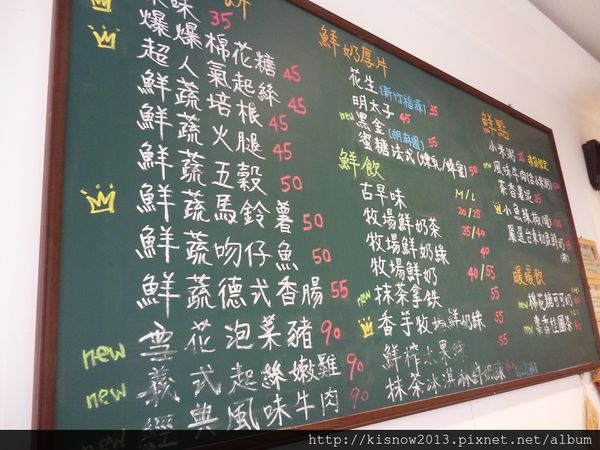 味 35
爆爆棉花糖 45
超人氣起絲 45
鮮蔬培根 45
鮮蔬火腿 45
鮮蔬五穀 50
鮮蔬馬鈴薯 50
鮮蔬吻仔魚 50
鮮蔬德式香腸 55
new 雪花泡菜豬 90
new 義式起絲嫩雞 90
new 經典風味牛肉 90
鮮奶厚片
花生(新竹福源) 35
明太子 45
new 黑金(胡麻園) 35
蜜糖法式(煉乳/蜂蜜) 50
鮮飲
M/L
古早味 20/25
牧場鮮奶茶 35/40
牧場鮮奶綠 40
牧場鮮奶 40/55
new 抹茶拿鐵 55
香芋牧場鮮奶綠 55
鮮榨水果綠 55
抹茶冰淇淋鮮奶綠
鮮點
小米粥 25
new
茶香薯泥 25
小魚辣椒
暖暖飲
new 棉花糖可可奶 60
new 薑香桂圓茶 50
http://kisnow2013.pixnet.net/album